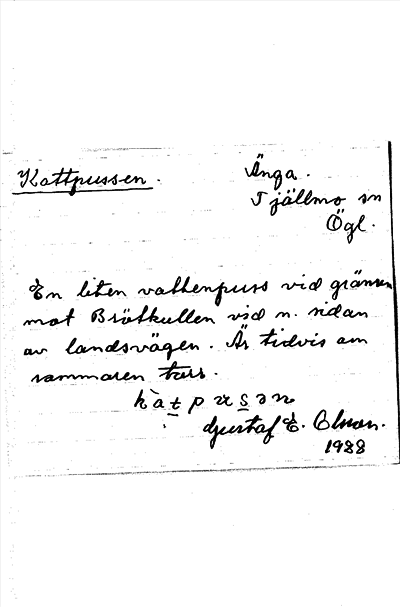 Kattpussen.
Änga.
Tjällmo sn
Ögl.
En liten vattenpuss vid gränsen
mot Brötkullen vid n. sidan
av landsvägen. Är tidvis om
sommaren torr.
kàtpusən
Gustaf E. Olson.
1988